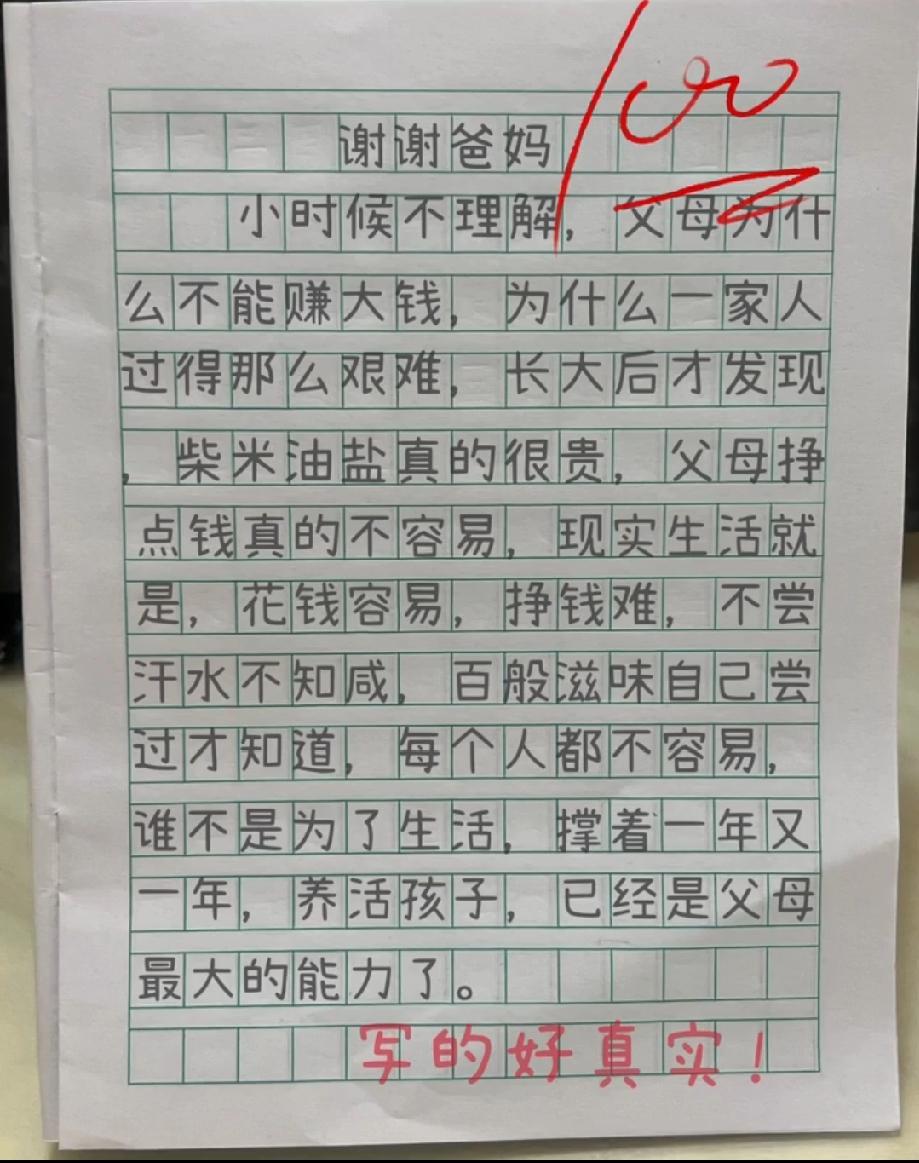 100
谢谢爸妈
小时候不理解，父母为什
么不能赚大钱，为什么一家人
过得那么艰难，长大后才发现
，柴米油盐真的很贵，父母挣
点钱真的不容易，现实生活就
是，花钱容易，挣钱难，不尝
汗水不知咸，百般滋味自己尝
过才知道，每个人都不容易，
谁不是为了生活，撑着一年又
一年，养活孩子，已经是父母
最大的能力了。
写的好真实！